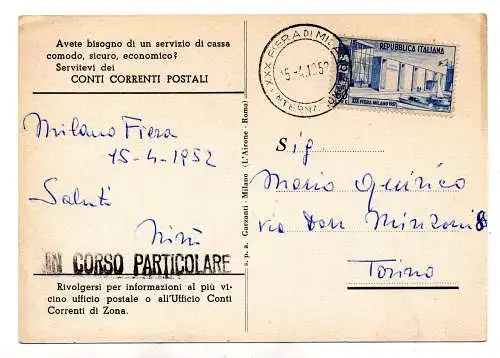 Avete bisogno di un servizio di cassa
comodo, sicuro, economico?
Servitevi dei
CONTI CORRENTI POSTALI
Milano Fiera
15-4-1952
Saluti
Ninì
IN CORSO PARTICOLARE
Rivolgersi per informazioni al più vi-
cino ufficio postale o all'Ufficio Conti
Correnti di Zona.
s. p. a. Garzanti - Milano - (L'Airone - Roma)
XXX FIERA DI MILANO
15-4.1952
REPUBBLICA ITALIANA
XXX FIERA MILANO 1952
Sig.
Mario Quirico
via Don Minzoni 8
Torino